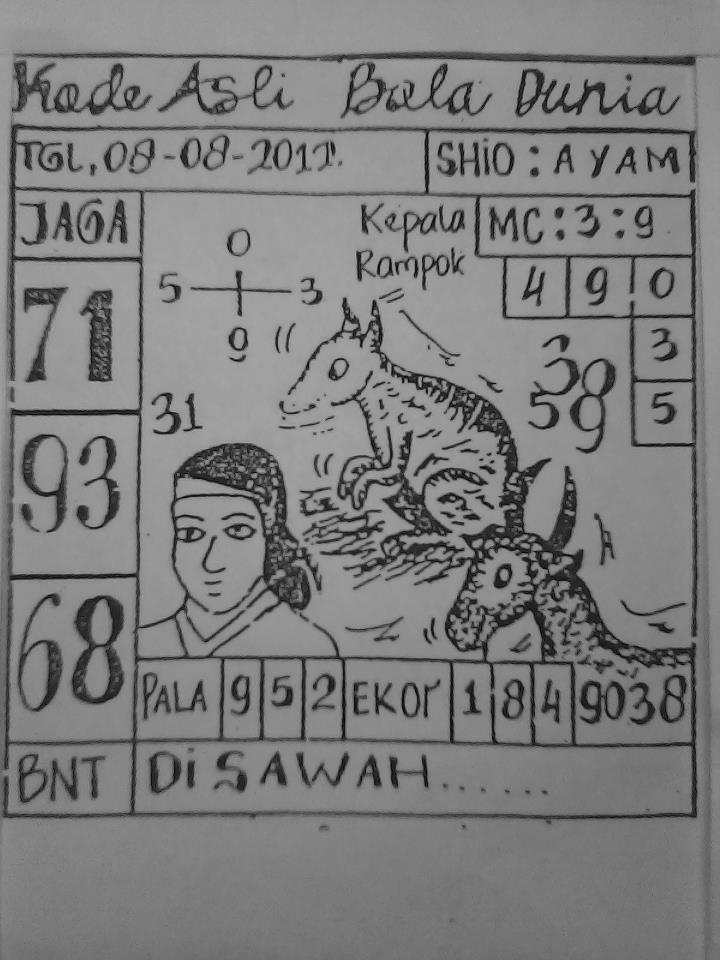 Kode Asli Bola Dunia
TGL, 08-08-2011.
SHIO : AYAM
JAGA
71
93
68
BNT
0
5 3
9
31
Kepala
Rampok
MC : 3 : 9
4 9 0
3
5
38
59
PALA 9 5 2 EKOR 1 8 4 9038
Di SAWAH.......